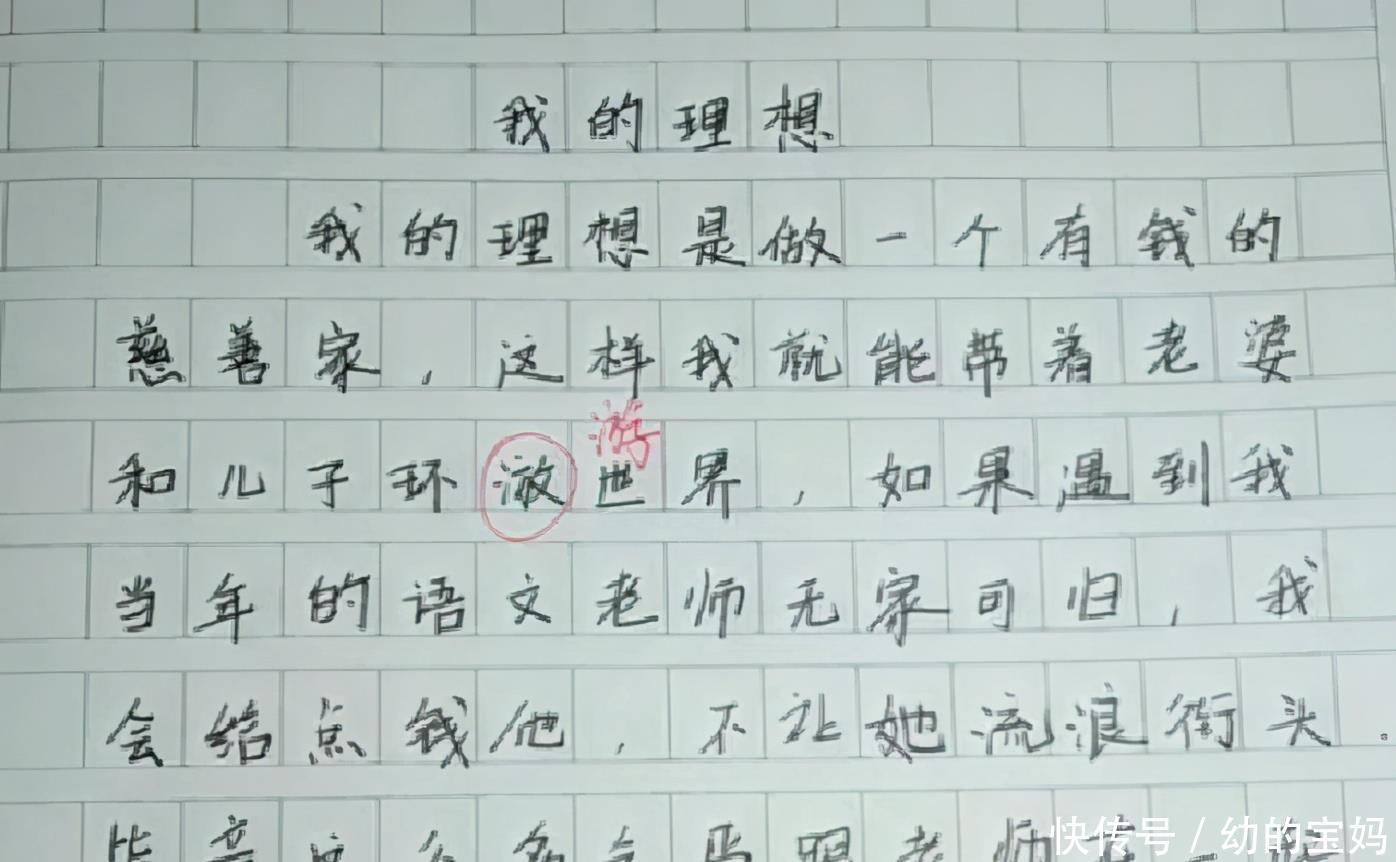 我的理想
我的理想是做一个有钱的
慈善家，这样我就能带着老婆
游
和儿子环激世界，如果遇到我
当年的语文老师无家可归，我
会给点钱他，不让她流浪街头。
快传号 / 幼的宝妈